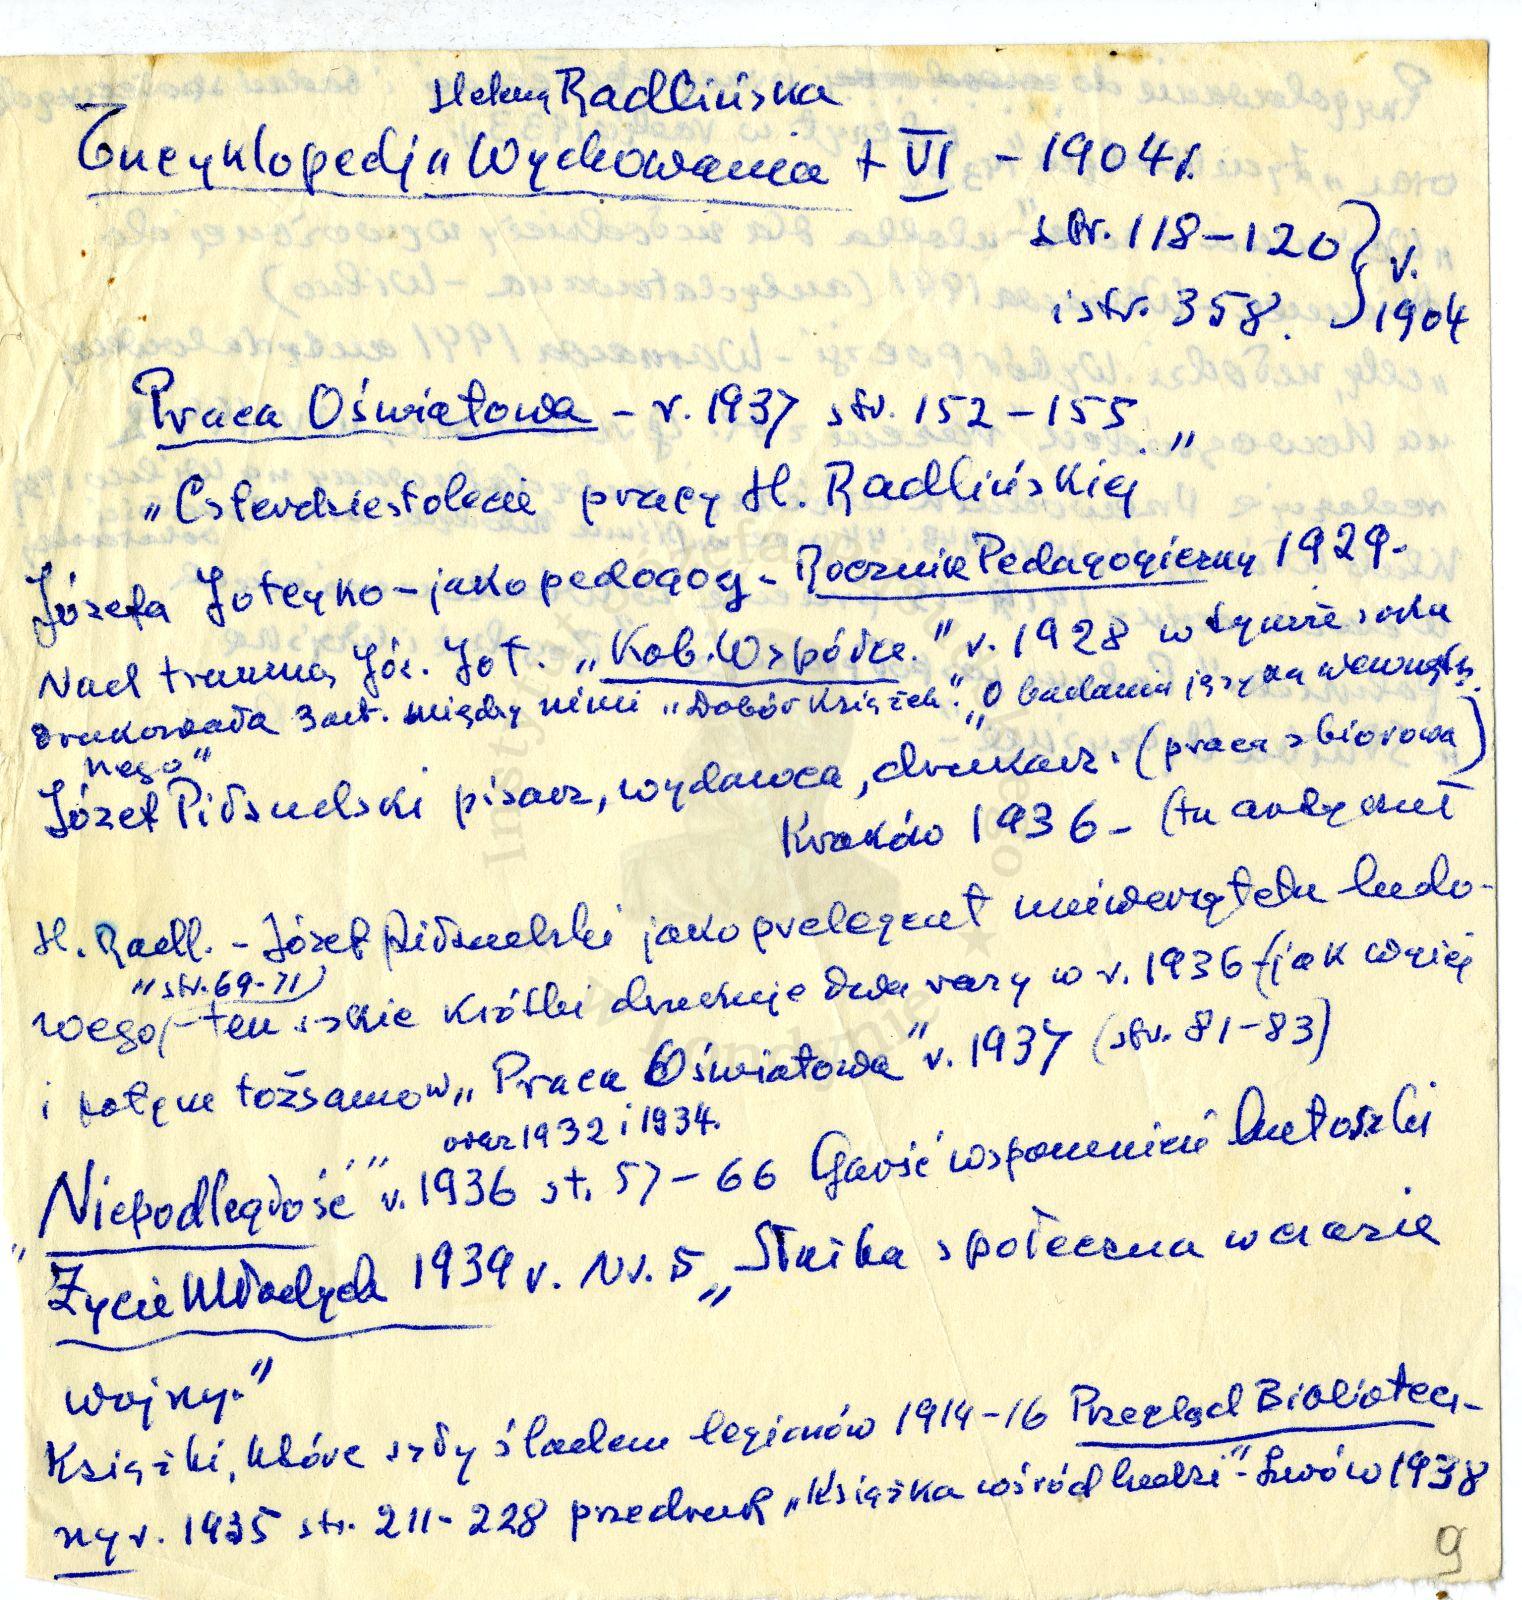 Helena Radlińska
Encyklopedja Wychowania t VI - 1904 r.
str. 118-120 } r.
i str. 358. } 1904
Praca Oświatowa - r. 1937 str. 152-155 "
„Czterdziestolecie pracy H. Radlińskiej
Józefa Joteyko - jako pedagog - Rocznik Pedagogiczny 1929.
Nad trumną Józ. Jot. „Kob. Współcz." r. 1928 w tymże roku
drukowała 3 art. między nimi „Dobór książek". „O badaniu języka wewnętrz
nego"
Józef Piłsudski pisarz, wydawca, drukarz. (praca zbiorowa)
Kraków 1936 - (tu artykuł
H. Radl. - Józef Piłsudski jako prelegent uniwersytetu ludo-
„str. 69-71)
wego, - ten szkic krótki drukuje dwa razy w r. 1936 - (jak wyżej
i potem tożsamo w „Praca Oświatowa" r. 1937 (str. 81-83)
oraz 1932 i 1934.
„Niepodległość" r. 1936 st. 57-66 Garść wspomnień bibuły
Życie Młodych 1939 r. Nr. 5 „Służba społeczna w czasie
wojny."
Książki, które szły śladem legionów 1914-16 Przegląd Bibliotecz-
ny r. 1935 str. 211-228 przedruk „Książka wśród ludzi" - Lwów 1938
9
Instytut Józefa Piłsudskiego
w Londynie